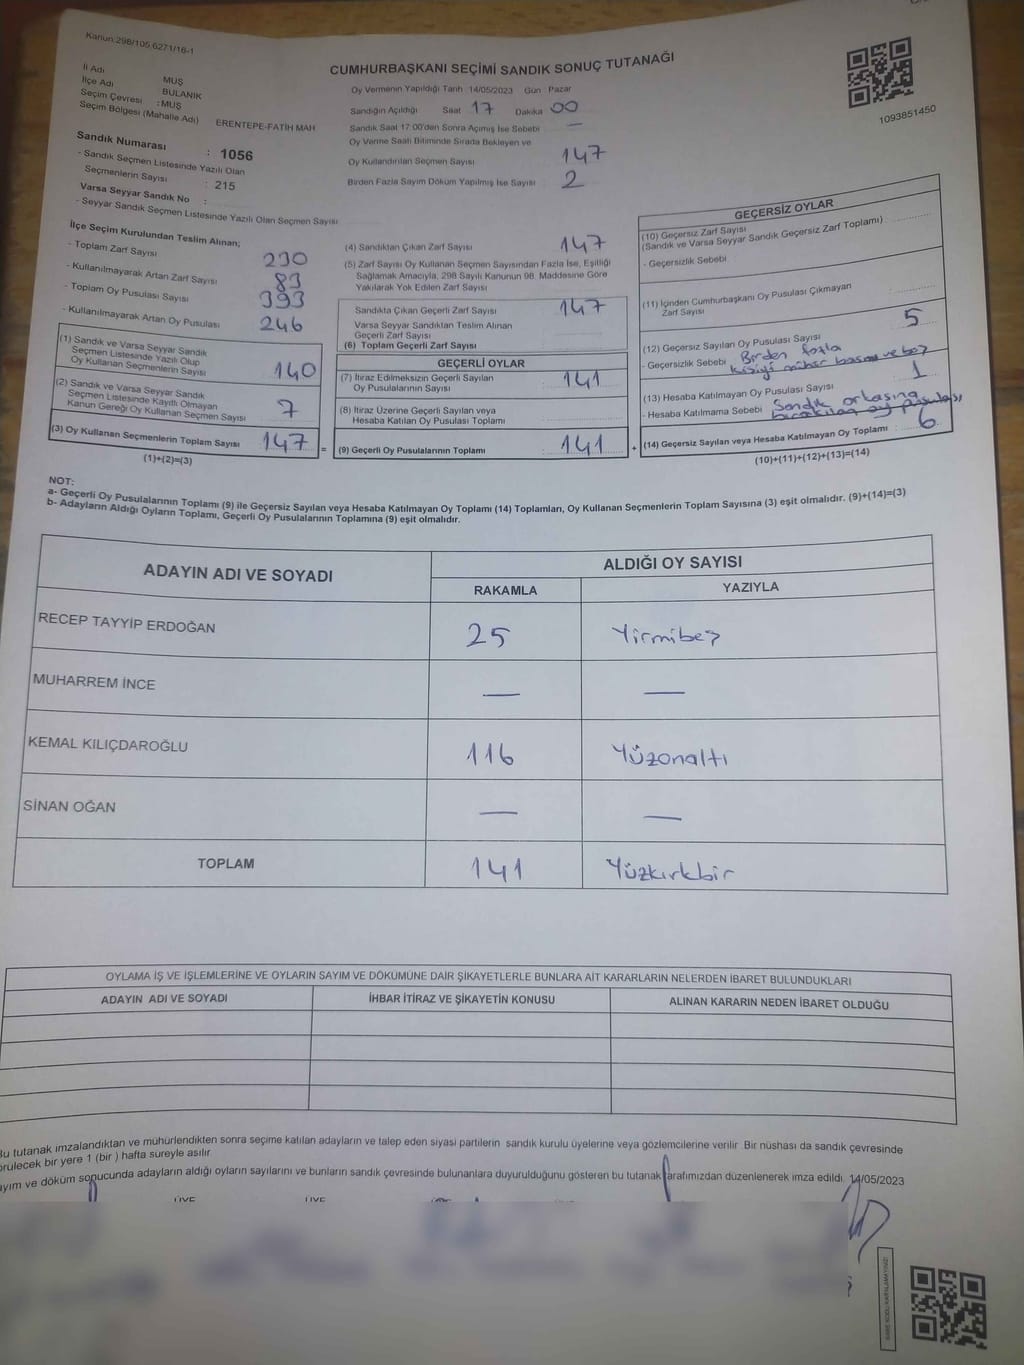 Kanun:298/105,6271/16-1
CUMHURBAŞKANI SEÇİMİ SANDIK SONUÇ TUTANAĞI
1093851450
İl Adı MUŞ
İlçe Adı BULANIK
Seçim Çevresi : MUŞ
Seçim Bölgesi (Mahalle Adı) ERENTEPE-FATİH MAH
Sandık Numarası : 1056
- Sandık Seçmen Listesinde Yazılı Olan
Seçmenlerin Sayısı : 215
Varsa Seyyar Sandık No :
- Seyyar Sandık Seçmen Listesinde Yazılı Olan Seçmen Sayısı
Oy Vermenin Yapıldığı Tarih 14/05/2023 Gün Pazar
Sandığın Açıldığı Saat 17 Dakika 00
Sandık Saat 17:00'dan Sonra Açımış İse Sebebi —
Oy Verme Saati Bitiminde Sırada Bekleyen ve
Oy Kullandırılan Seçmen Sayısı 147
Birden Fazla Sayım Döküm Yapılmış İse Sayısı 2
İlçe Seçim Kurulundan Teslim Alınan;
- Toplam Zarf Sayısı 230
- Kullanılmayarak Artan Zarf Sayısı 83
- Toplam Oy Pusulası Sayısı 393
- Kullanılmayarak Artan Oy Pusulası 246
(1) Sandık ve Varsa Seyyar Sandık
Seçmen Listesinde Yazılı Olup
Oy Kullanan Seçmenlerin Sayısı 140
(2) Sandık ve Varsa Seyyar Sandık
Seçmen Listesinde Kayıtlı Olmayan
Kanun Gereği Oy Kullanan Seçmen Sayısı 7
(3) Oy Kullanan Seçmenlerin Toplam Sayısı 147
(1)+(2)=(3)
(4) Sandıktan Çıkan Zarf Sayısı 147
(5) Zarf Sayısı Oy Kullanan Seçmen Sayısından Fazla İse, Eşitliği
Sağlamak Amacıyla, 298 Sayılı Kanunun 98. Maddesine Göre
Yakılarak Yok Edilen Zarf Sayısı
Sandıkta Çıkan Geçerli Zarf Sayısı 147
Varsa Seyyar Sandıktan Teslim Alınan
Geçerli Zarf Sayısı
(6) Toplam Geçerli Zarf Sayısı
GEÇERLİ OYLAR
(7) İtiraz Edilmeksizin Geçerli Sayılan
Oy Pusulalarının Sayısı 141
(8) İtiraz Üzerine Geçerli Sayılan veya
Hesaba Katılan Oy Pusulası Toplamı
(9) Geçerli Oy Pusulalarının Toplamı 141
=
+
GEÇERSİZ OYLAR
(10) Geçersiz Zarf Sayısı
(Sandık ve Varsa Seyyar Sandık Geçersiz Zarf Toplamı)
- Geçersizlik Sebebi
(11) İçinden Cumhurbaşkanı Oy Pusulası Çıkmayan
Zarf Sayısı
(12) Geçersiz Sayılan Oy Pusulası Sayısı 5
- Geçersizlik Sebebi Birden fazla
kişiye mühür basma ve boş
(13) Hesaba Katılmayan Oy Pusulası Sayısı 1
- Hesaba Katılmama Sebebi Sandık arkasına
bırakılan oy pusulası
(14) Geçersiz Sayılan veya Hesaba Katılmayan Oy Toplamı : 6
(10)+(11)+(12)+(13)=(14)
NOT:
a- Geçerli Oy Pusulalarının Toplamı (9) ile Geçersiz Sayılan veya Hesaba Katılmayan Oy Toplamı (14) Toplamları, Oy Kullanan Seçmenlerin Toplam Sayısına (3) eşit olmalıdır. (9)+(14)=(3)
b- Adayların Aldığı Oyların Toplamı, Geçerli Oy Pusulalarının Toplamına (9) eşit olmalıdır.
ADAYIN ADI VE SOYADI ALDIĞI OY SAYISI
RAKAMLA YAZIYLA
RECEP TAYYİP ERDOĞAN 25 Yirmibeş
MUHARREM İNCE — —
KEMAL KILIÇDAROĞLU 116 Yüzonaltı
SİNAN OĞAN — —
TOPLAM 141 Yüzkırkbir
OYLAMA İŞ VE İŞLEMLERİNE VE OYLARIN SAYIM VE DÖKÜMÜNE DAİR ŞİKAYETLERLE BUNLARA AİT KARARLARIN NELERDEN İBARET BULUNDUKLARI
ADAYIN ADI VE SOYADI İHBAR İTİRAZ VE ŞİKAYETİN KONUSU ALINAN KARARIN NEDEN İBARET OLDUĞU
Bu tutanak imzalandıktan ve mühürlendikten sonra seçime katılan adayların ve talep eden siyasi partilerin sandık kurulu üyelerine veya gözlemcilerine verilir. Bir nüshası da sandık çevresinde
örülecek bir yere 1 (bir ) hafta süreyle asılır.
ayım ve döküm sonucunda adayların aldığı oyların sayılarını ve bunların sandık çevresinde bulunanlara duyurulduğunu gösteren bu tutanak tarafımızdan düzenlenerek imza edildi. 14/05/2023
ÜYE ÜYE